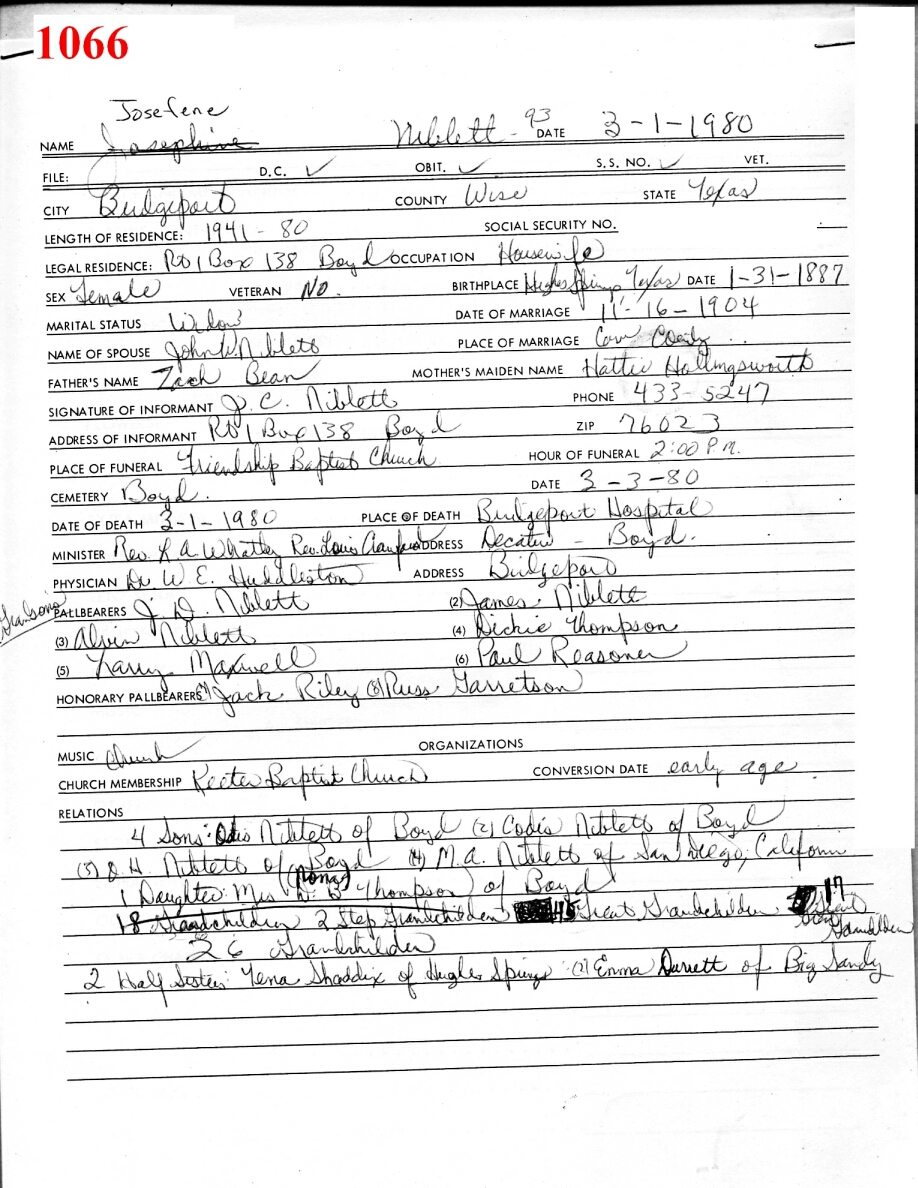 1066
Josefene
NAME Josephine Niblett - 93 DATE 3-1-1980
FILE: D.C. ✓ OBIT. ✓ S.S. NO. ✓ VET.
CITY Bridgeport COUNTY Wise STATE Texas
LENGTH OF RESIDENCE: 1941-80 SOCIAL SECURITY NO.
LEGAL RESIDENCE: Rt 1 Box 138 Boyd OCCUPATION Housewife
SEX Female VETERAN No. BIRTHPLACE Hughes Springs Texas DATE 1-31-1887
MARITAL STATUS Widow DATE OF MARRIAGE 11-16-1904
NAME OF SPOUSE John W. Niblett PLACE OF MARRIAGE
FATHER'S NAME Zach Bean MOTHER'S MAIDEN NAME Hattie Hollingsworth
SIGNATURE OF INFORMANT J. C. Niblett PHONE 433-5247
ADDRESS OF INFORMANT Rt 1 Box 138 Boyd ZIP 76023
PLACE OF FUNERAL Friendship Baptist Church HOUR OF FUNERAL 2:00 P.M.
CEMETERY Boyd. DATE 3-3-80
DATE OF DEATH 3-1-1980 PLACE OF DEATH Bridgeport Hospital
MINISTER Rev. L. A. Whatley Rev. Louis Crawford ADDRESS Decatur - Boyd.
PHYSICIAN Dr W. E. Huddleston ADDRESS Bridgeport
Grandsons
PALLBEARERS J. D. Niblett (2) James Niblett
(3) Alvin Niblett (4) Dickie Thompson
(5) Larry Maxwell (6) Paul Reasoner
HONORARY PALLBEARERS (7) Jack Riley (8) Russ Garretson
MUSIC Church ORGANIZATIONS
CHURCH MEMBERSHIP Keeter Baptist Church CONVERSION DATE early age
RELATIONS
4 Sons: Odis Niblett of Boyd (2) Codis Niblett of Boyd
(3) H. Niblett of Boyd (4) M. A. Niblett of San Diego, California
(Nona)
1 Daughter: Mrs D. B. Thompson of Boyd
18 Grandchildren 2 Step Grandchildren 45 Great Grandchildren 17 Great Great Grandchildren
26 Grandchildren
2 Half Sisters: Lena Shaddix of Hughes Springs (2) Emma Durrett of Big Sandy